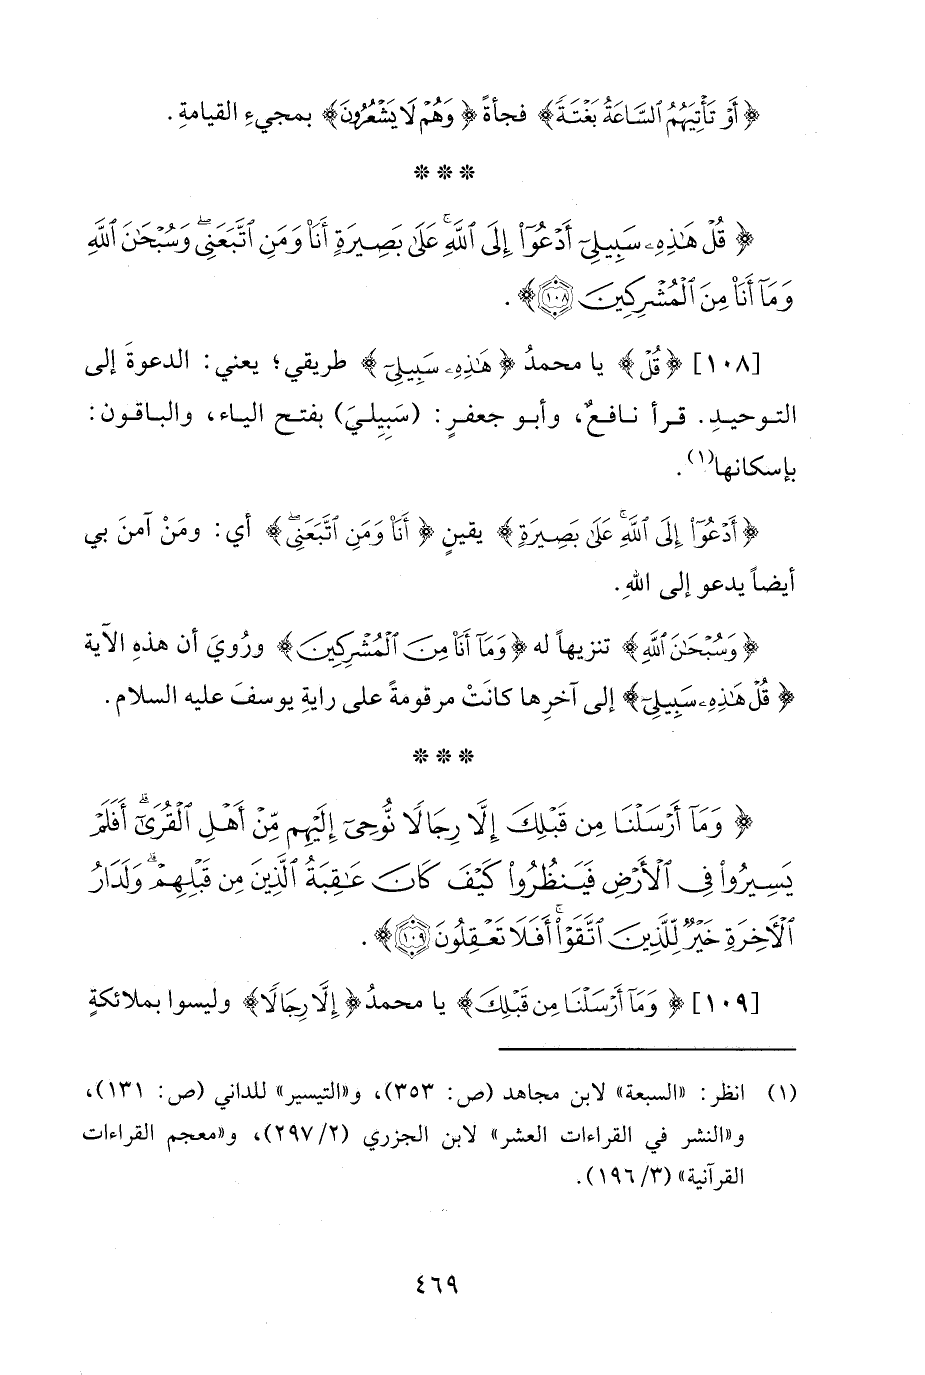 ﴿ أَوْ تَأْتِيَهُمُ ٱلسَّاعَةُ بَغْتَةً ﴾ فجأةً ﴿ وَهُمْ لَا يَشْعُرُونَ ﴾ بمجيءِ القيامةِ .
* * *
﴿ قُلْ هَـٰذِهِۦ سَبِيلِىٓ أَدْعُوٓا۟ إِلَى ٱللَّهِ ۚ عَلَىٰ بَصِيرَةٍ أَنَا۠ وَمَنِ ٱتَّبَعَنِى ۖ وَسُبْحَـٰنَ ٱللَّهِ
وَمَآ أَنَا۠ مِنَ ٱلْمُشْرِكِينَ ١٠٨ ﴾ .
[١٠٨] ﴿ قُلْ ﴾ يا محمدُ ﴿ هَـٰذِهِۦ سَبِيلِىٓ ﴾ طريقي؛ يعني: الدعوةَ إلى
التوحيدِ. قرأ نافعٌ، وأبو جعفرٍ: (سَبِيلِيَ) بفتح الياء، والباقون:
بإسكانها(١).
﴿ أَدْعُوٓا۟ إِلَى ٱللَّهِ ۚ عَلَىٰ بَصِيرَةٍ ﴾ يقينٍ ﴿ أَنَا۠ وَمَنِ ٱتَّبَعَنِى ۖ ﴾ أي: ومَنْ آمنَ بي
أيضاً يدعو إلى اللهِ.
﴿ وَسُبْحَـٰنَ ٱللَّهِ ﴾ تنزيهاً له ﴿ وَمَآ أَنَا۠ مِنَ ٱلْمُشْرِكِينَ ﴾ ورُويَ أن هذهِ الآية
﴿ قُلْ هَـٰذِهِۦ سَبِيلِىٓ ﴾ إلى آخرِها كانَتْ مرقومةً على رايةِ يوسفَ عليه السلام.
* * *
﴿ وَمَآ أَرْسَلْنَا مِن قَبْلِكَ إِلَّا رِجَالًا نُّوحِىٓ إِلَيْهِم مِّنْ أَهْلِ ٱلْقُرَىٰٓ ۗ أَفَلَمْ
يَسِيرُوا۟ فِى ٱلْأَرْضِ فَيَنظُرُوا۟ كَيْفَ كَانَ عَـٰقِبَةُ ٱلَّذِينَ مِن قَبْلِهِمْ ۗ وَلَدَارُ
ٱلْـَٔاخِرَةِ خَيْرٌ لِّلَّذِينَ ٱتَّقَوْا۟ ۚ أَفَلَا تَعْقِلُونَ ١٠٩ ﴾ .
[١٠٩] ﴿ وَمَآ أَرْسَلْنَا مِن قَبْلِكَ ﴾ يا محمدُ ﴿ إِلَّا رِجَالًا ﴾ وليسوا بملائكةٍ
(١) انظر: «السبعة» لابن مجاهد (ص: ٣٥٣)، و«التيسير» للداني (ص: ١٣١)،
و«النشر في القراءات العشر» لابن الجزري (٢/ ٢٩٧)، و«معجم القراءات
القرآنية» (٣/ ١٩٦).
٤٦٩